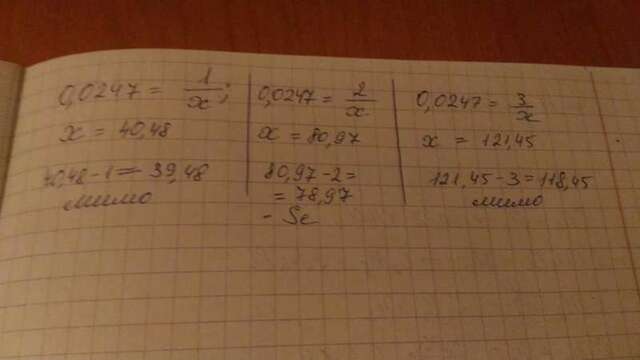 0,0247 = 1/x;
x = 40,48
40,48 - 1 = 39,48
мимо
0,0247 = 2/x
x = 80,97
80,97 - 2 =
= 78,97
- Se
0,0247 = 3/x
x = 121,45
121,45 - 3 = 118,45
мимо